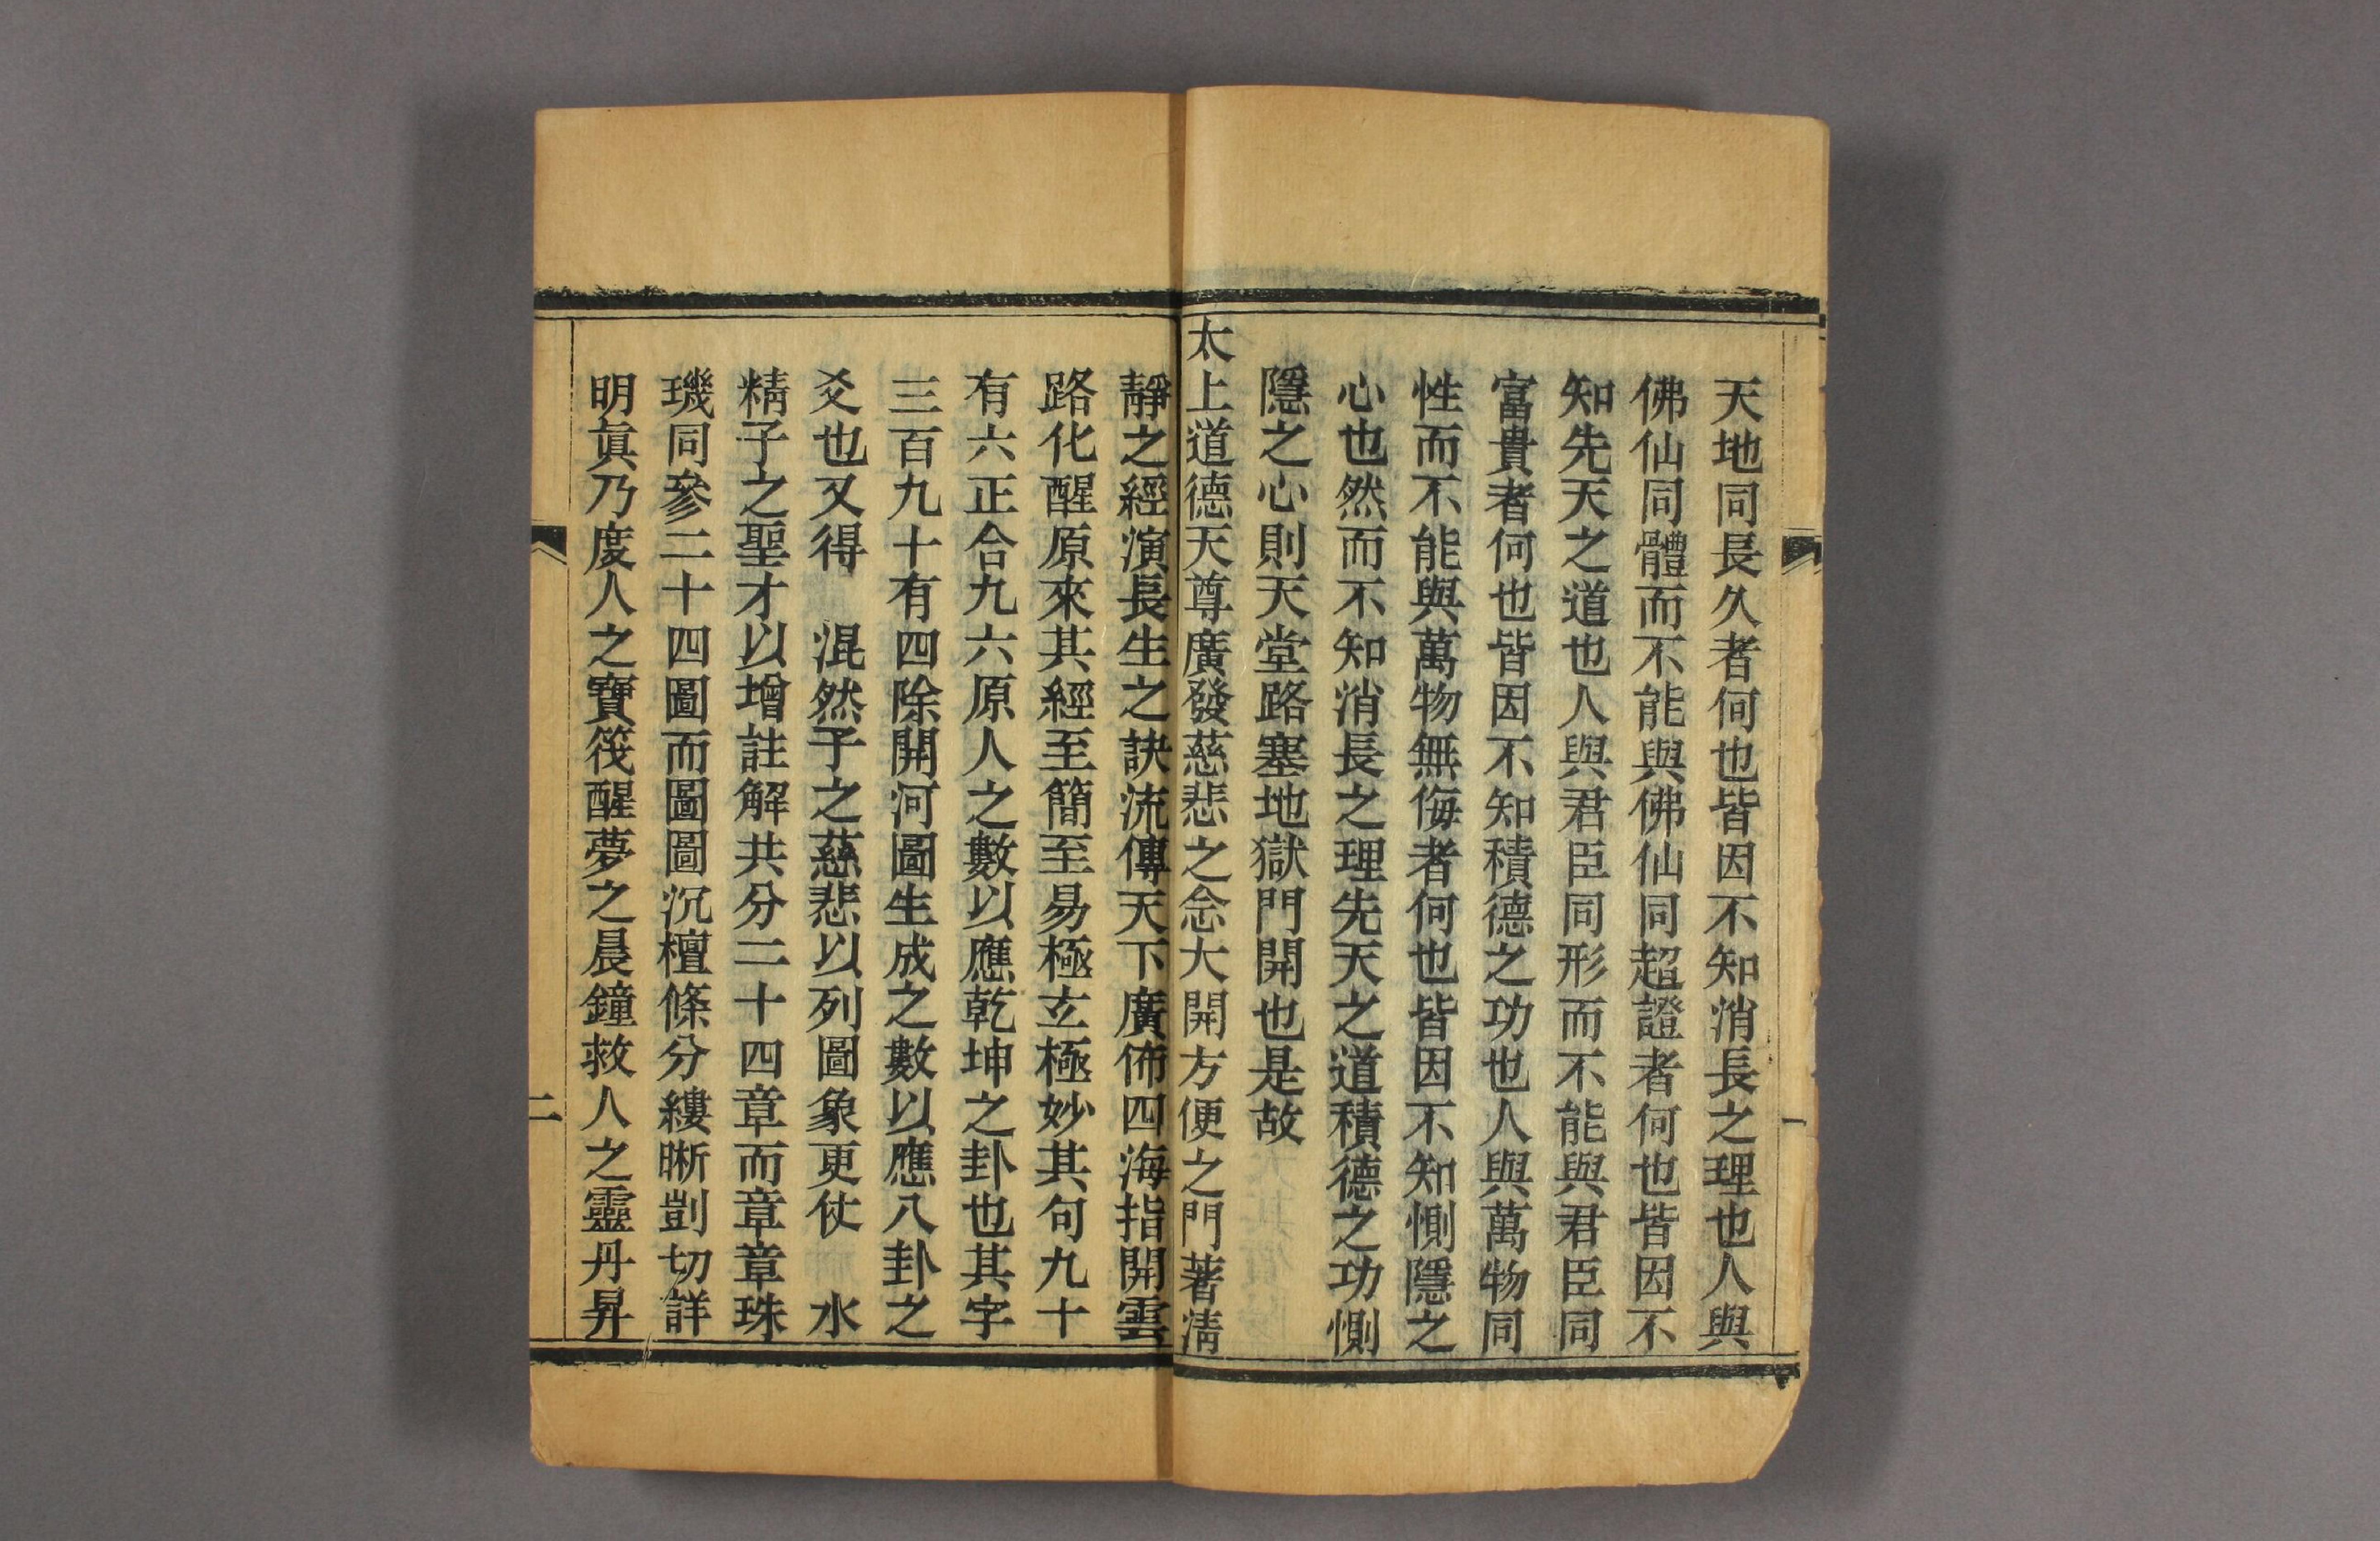 天地同長久者何也皆因不知消長之理也人與
佛仙同體而不能與佛仙同超證者何也皆因不
知先天之道也人與君臣同形而不能與君臣同
富貴者何也皆因不知積德之功也人與萬物同
性而不能與萬物無侮者何也皆因不知惻隱之
心也然而不知消長之理先天之道積德之功惻
隱之心則天堂路塞地獄門開也是故
太上道德天尊廣發慈悲之念大開方便之門著淸
一
靜之經演長生之訣流傳天下廣佈四海指開雲
路化醒原來其經至簡至易極玄極妙其句九十
有六正合九六原人之數以應乾坤之卦也其字
三百九十有四除開河圖生成之數以應八卦之
爻也又得　混然子之慈悲以列圖象更仗　水
精子之聖才以增註解共分二十四章而章章珠
璣同參二十四圖而圖圖沉檀條分縷晰剴切詳
明眞乃度人之寶筏醒夢之晨鐘救人之靈丹昇
二